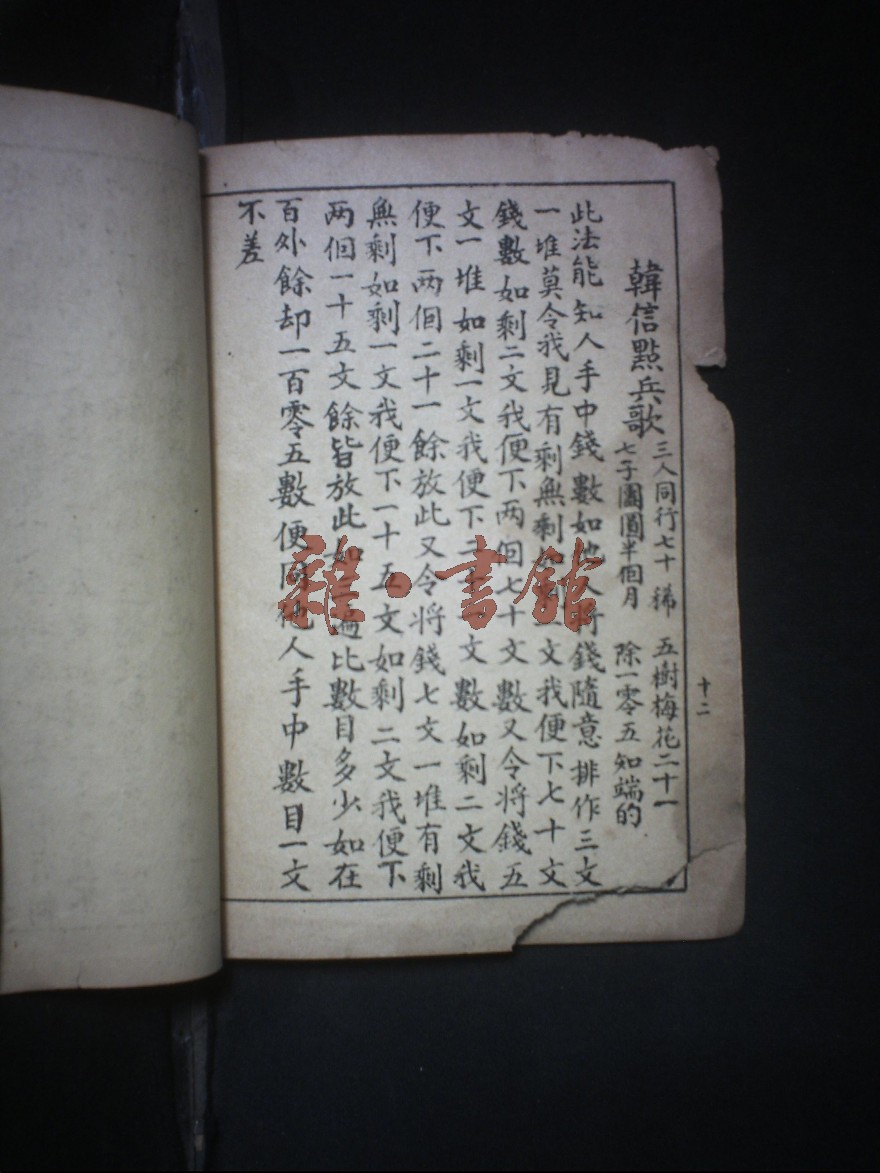 韓信點兵歌
三人同行七十稀 五樹梅花二十一
七子團圓半個月 除一零五知端的
此法能知人手中錢數如他人將錢隨意排作三文
一堆莫令我見有剩無剩如剩一文我便下七十文
錢數如剩二文我便下兩個七十文數又令將錢五
文一堆如剩一文我便下二十一文數如剩二文我
便下两個二十一餘放此又令将錢七文一堆有剩
無剩如剩一文我便下一十五文如剩二文我便下
两個一十五文餘皆放此如 遍比數目多少如在
百外餘却一百零五數便同他人手中數目一文
不差
十二
雜·書館